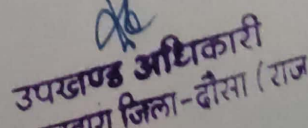 उपखण्ड अधिकारी
जिला-दौसा (राज